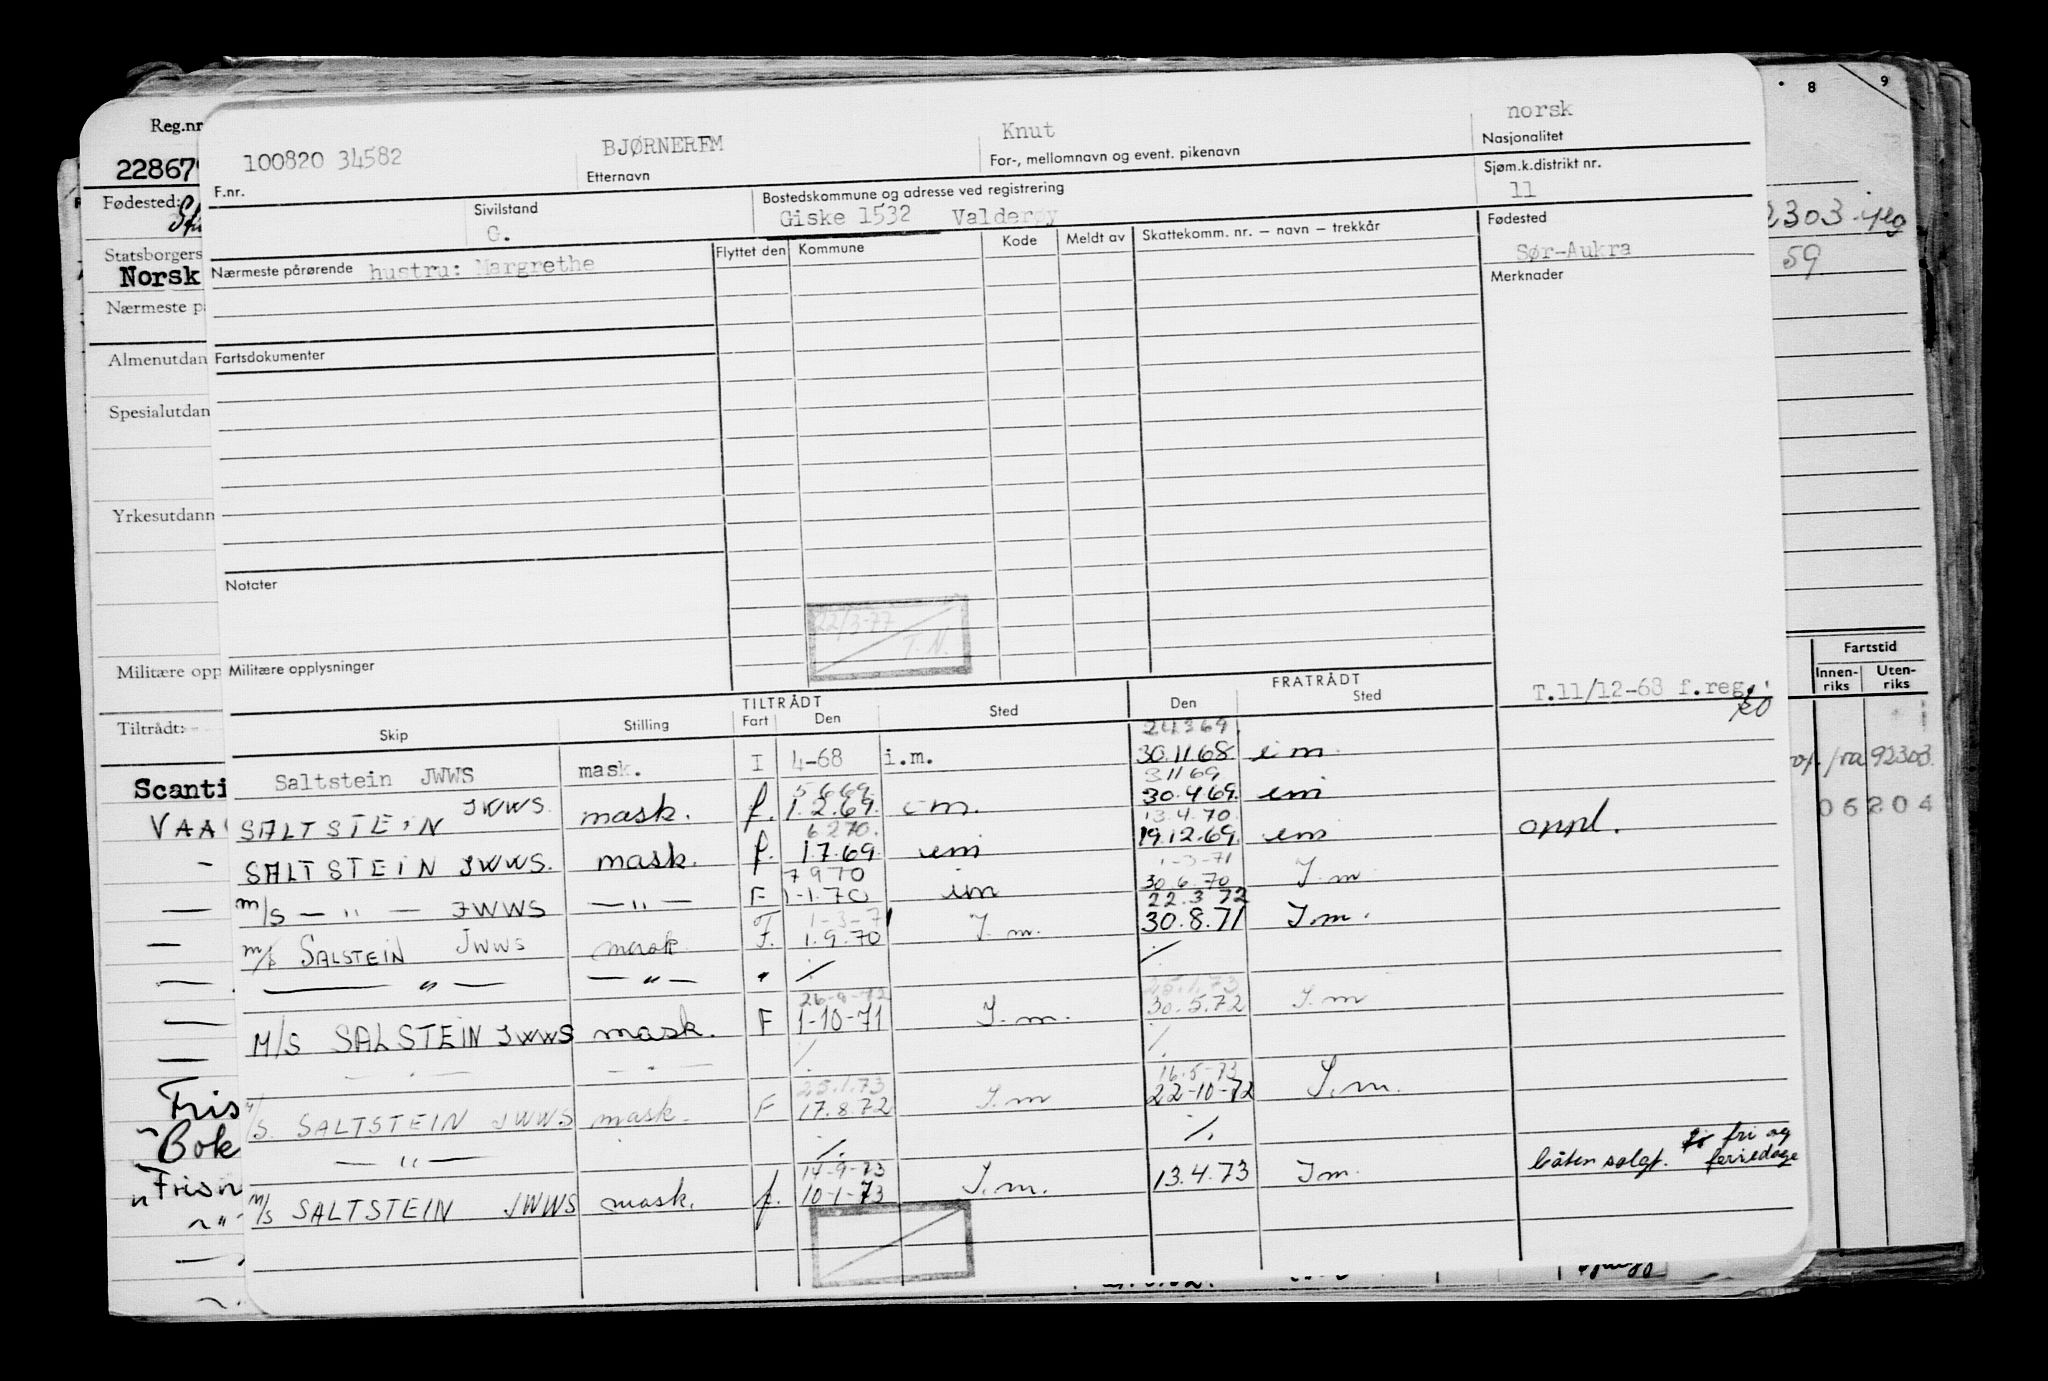 8 9
Reg.nr
228679
100820 34582 BJØRNEREM Knut norsk
F.nr. Etternavn For-, mellomnavn og event. pikenavn Nasjonalitet
Fødested:
Sivilstand Bostedskommune og adresse ved registrering Sjøm.k.distrikt nr.
G. Giske 1532 Valderøy 11
2303
59
Statsborgers
Norsk
Nærmeste pårørende hustru: Margrethe Flyttet den Kommune Kode Meldt av Skattekomm. nr. – navn – trekkår Fødested
Sør-Aukra
Merknader
Nærmeste p
Almenutdan
Fartsdokumenter
Spesialutdan
Yrkesutdann
Notater
22/3-77
T.N.
Militære opp
Militære opplysninger
Fartstid
Innen-riks Uten-riks
Tiltrådt:
TILTRÅDT FRATRÅDT T.11/12-68 f.reg.
Skip Stilling Fart Den Sted Den Sted
24369.
Saltstein JWWS mask. I 4-68 i.m. 30.11.68 im
5669. 31169
SALTSTEIN JWWS. mask. f. 1.2.69. im. 30.4.69. im
6270. 13.4.70.
SALTSTEIN JWWS. mask. f. 1.7.69. im 19.12.69. im oppl.
7970 1-3-71
m/s — " — JWWS — " — F 1-1.70 im 30.6.70 I.m
1-3-71 22.3.72
m/s SALSTEIN JWWS mask F. 1.9.70 I.m. 30.8.71 I.m.
— " — — " — " ⁒ ⁒
26-9-72 25.1.73
M/S SALSTEIN JWWS mask. F 1-10-71 I.m. 30.5.72 I.m
— " — — " — ⁒ ⁒
25.1.73 16-5-73
M/S. SALTSTEIN JWWS mask. F 17.8.72 I.m 22-10-72 I.m.
— " — ⁒ ⁒
14-9-73
m/s SALTSTEIN JWWS mask. f. 10-1-73 I.m. 13.4.73 Im. båten solgt. fri og feriedage
Scanti
VAA
Fris
Bok
Frisn
92303.
06204